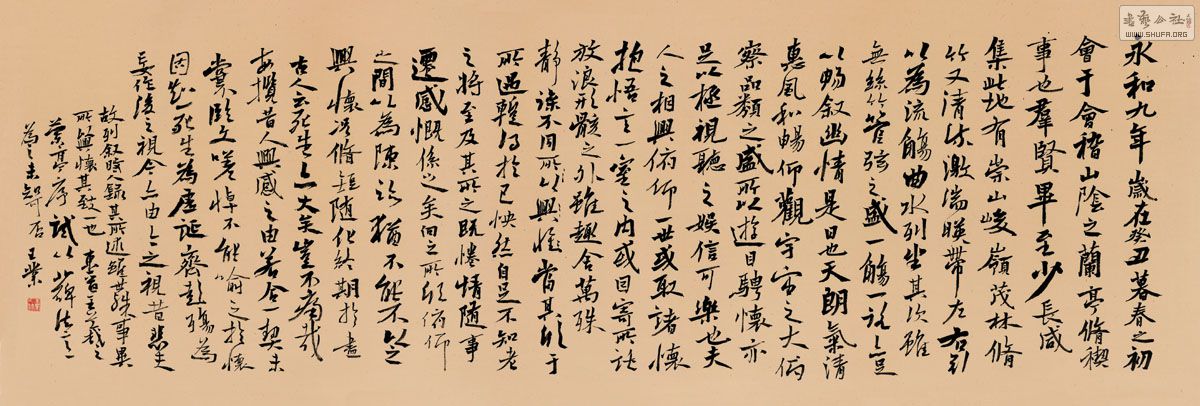 永和九年歲在癸丑暮春之初
會于會稽山陰之蘭亭脩稧
事也羣賢畢至少長咸
集此地有崇山峻嶺茂林脩
竹又清流激湍暎帶左右引
以為流觴曲水列坐其次雖
無絲竹管弦之盛一觴一詠
以暢敘幽情是日也天朗氣清
惠風和暢仰觀宇宙之大俯
察品類之盛所以遊目騁懷亦
足以極視聽之娛信可樂也夫
人之相與俯仰一世或取諸懷
抱悟言一室之内或因寄所託
放浪形骸之外雖趣舍萬殊
靜躁不同所以興懷當其欣于
所遇暫得於己怏然自足不知老
之將至及其所之既惓情隨事
遷感慨係之矣向之所欣俯仰
之間以為陳迹猶不能不以之
興懷況脩短隨化終期於盡
古人云死生亦大矣豈不痛哉
每攬昔人興感之由若合一契未
嘗臨文嗟悼不能喻之於懷
固知死生為虛誕齊彭殤為
妄作後之視今亦由今之視昔悲夫
故列敘時人錄其所述雖世殊事異
所以興懷其致一也 東晉王羲之
蘭亭序 試以
為之未知可否 王
書藝公社
WWW.SHUFA.ORG